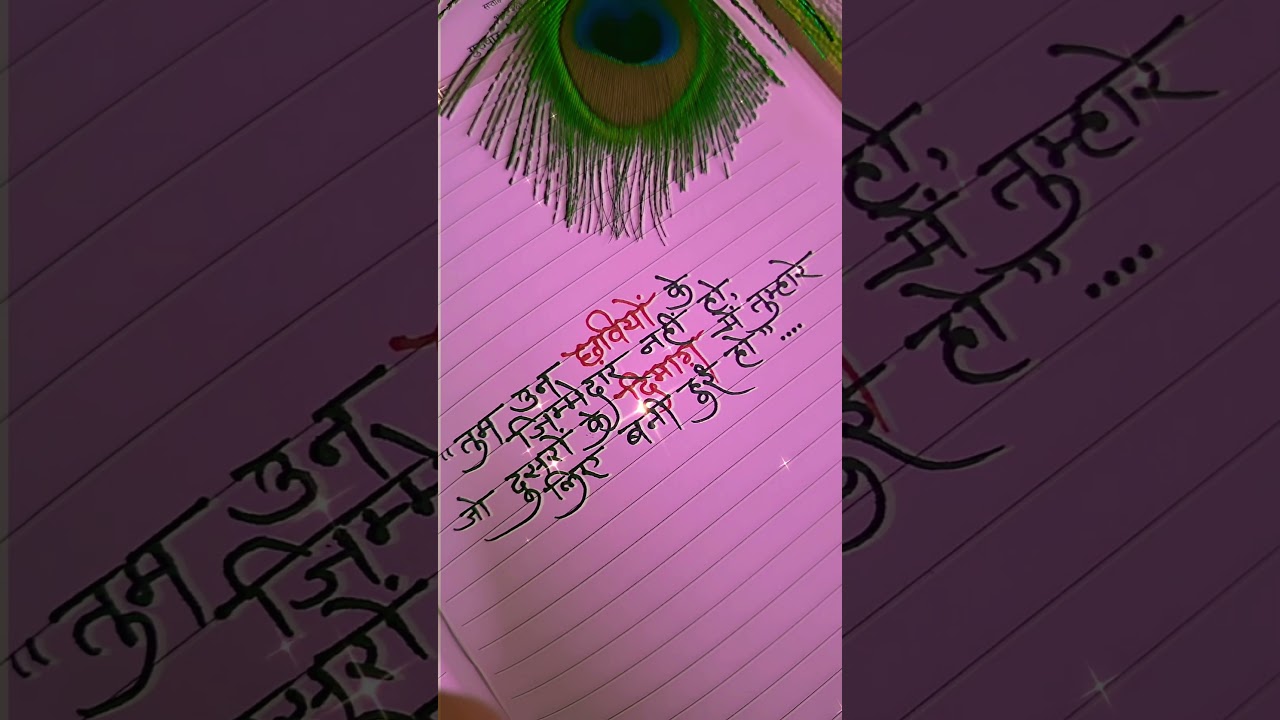 "तुम उन छवियों के
जिम्मेदार नहीं हो,
जो दुसरों के दिमाग़ में तुम्हारे
लिए बनी हुई हो"....